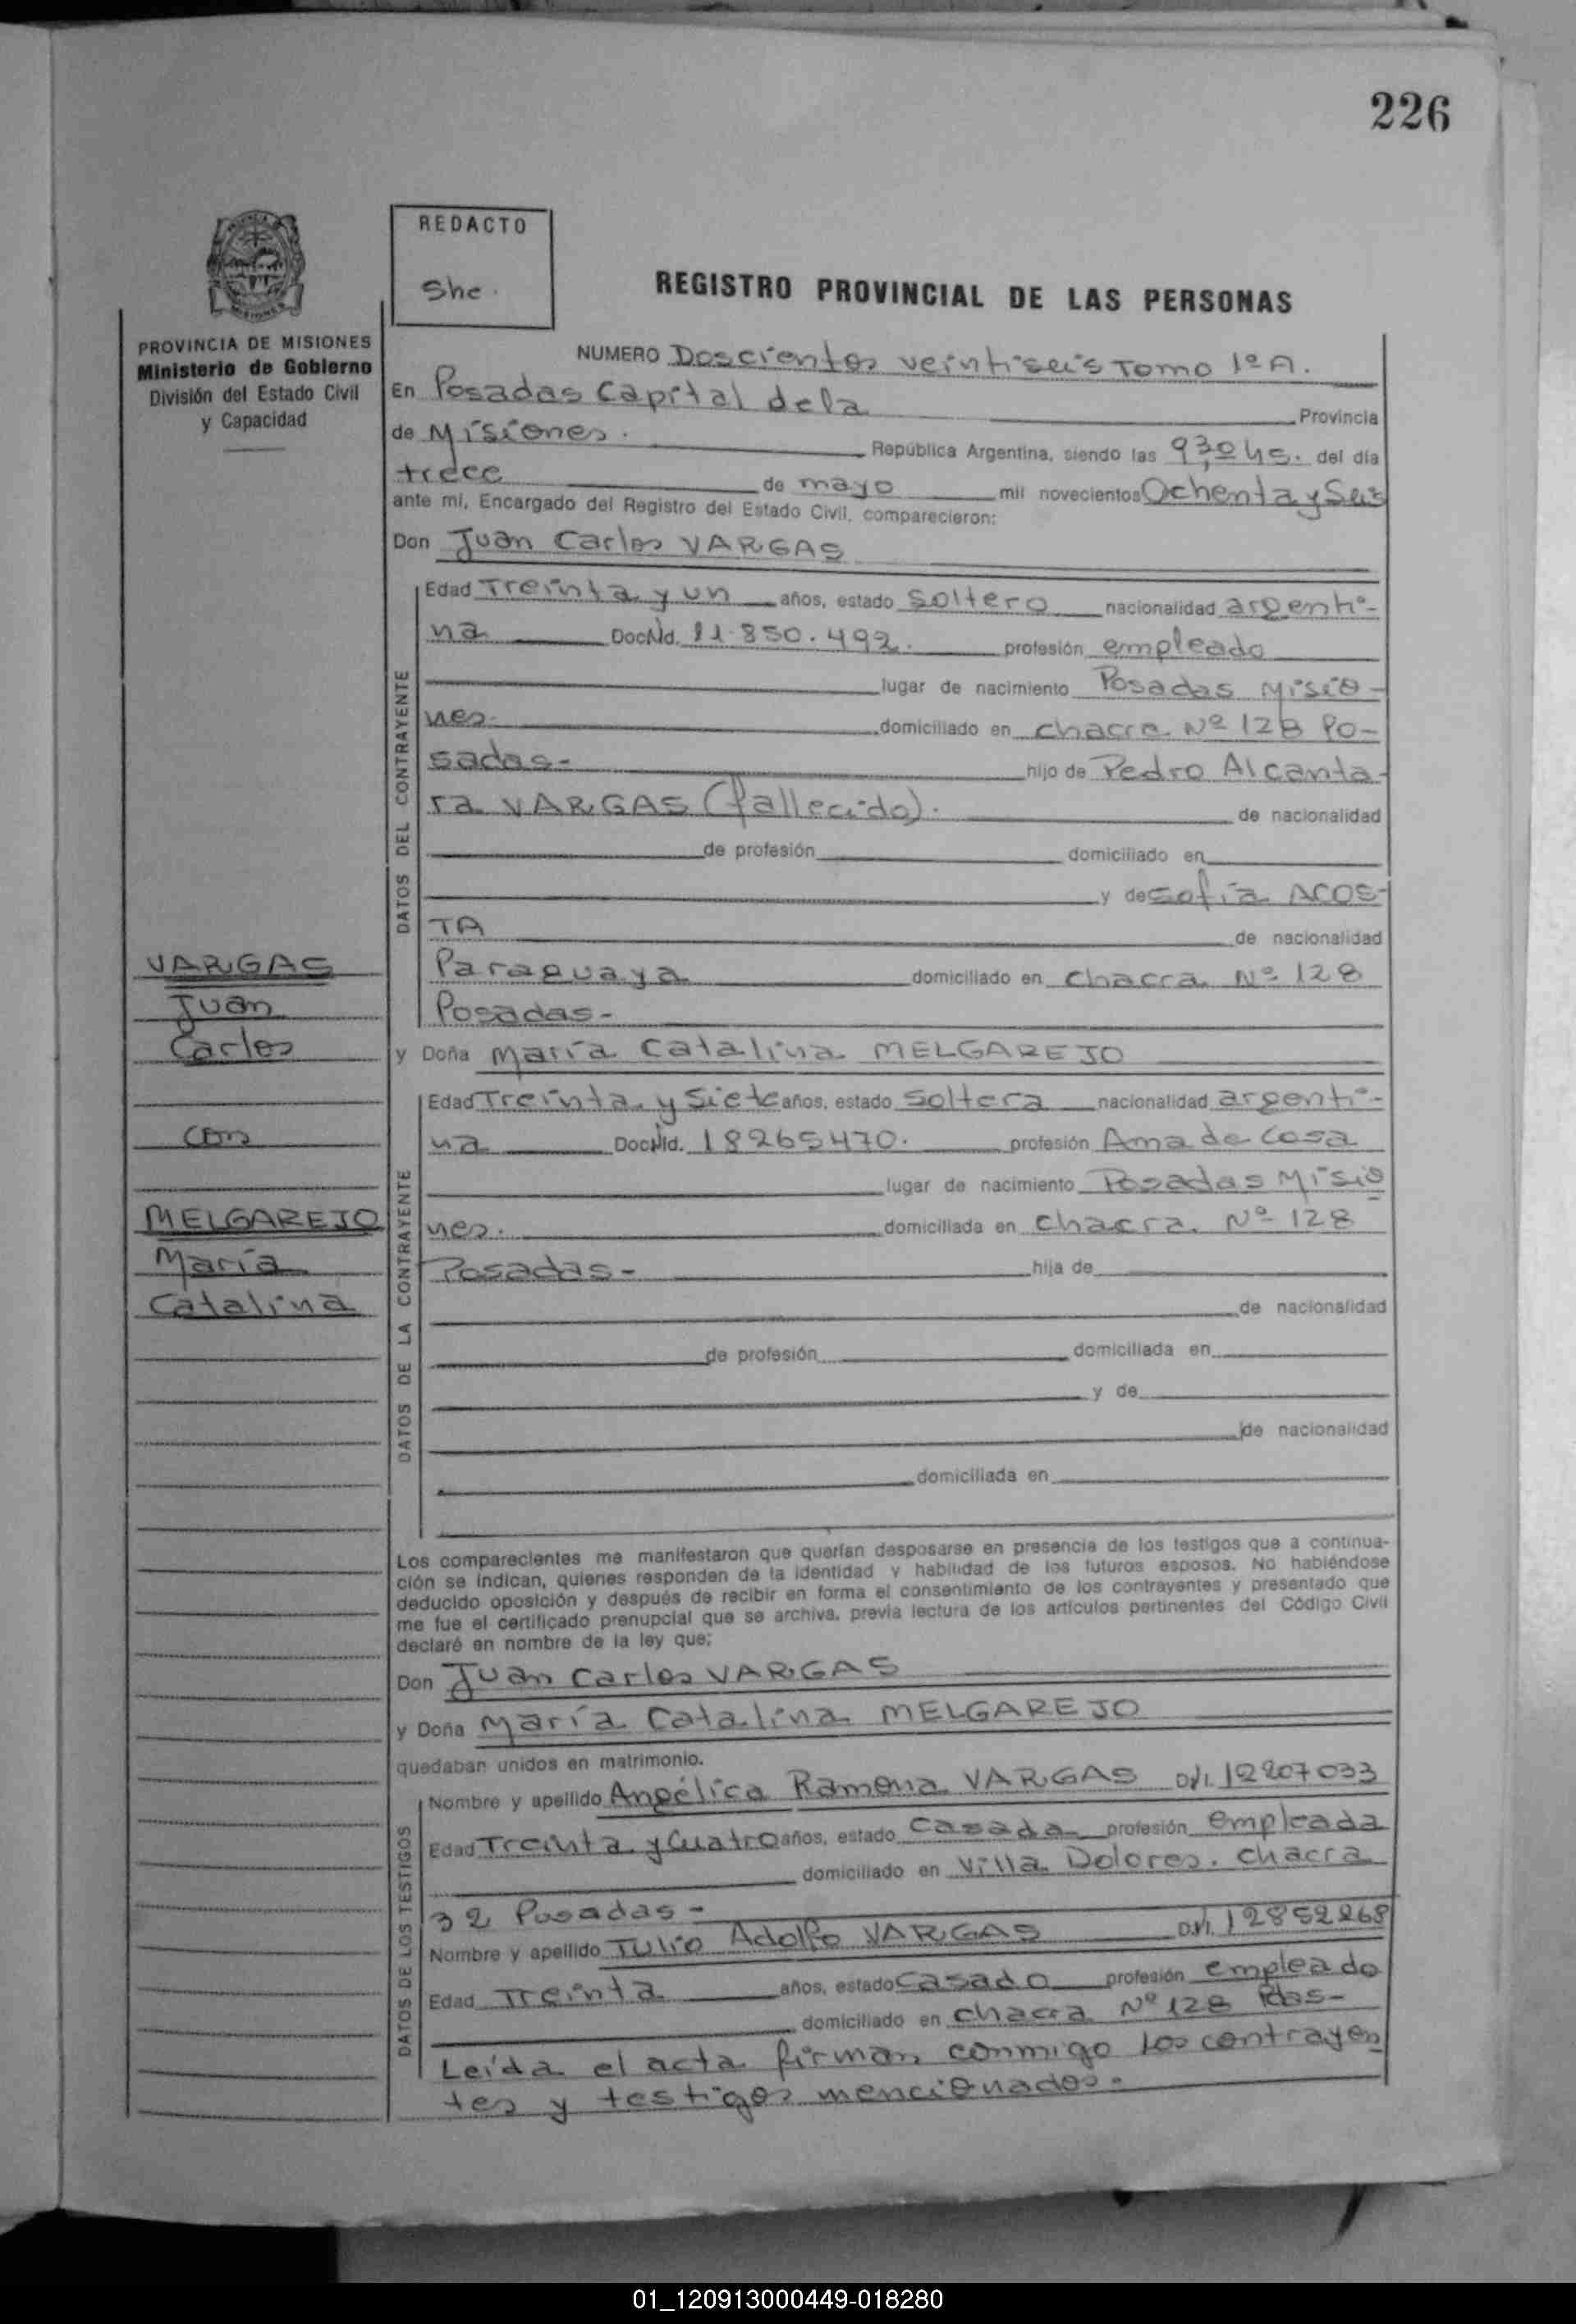 226
REDACTO
She.
REGISTRO PROVINCIAL DE LAS PERSONAS
PROVINCIA DE MISIONES
Ministerio de Gobierno
División del Estado Civil
y Capacidad
NUMERO Doscientos veintiseis Tomo 1º A.
En Posadas Capital de la Provincia
de Misiones. República Argentina, siendo las 9,30 hs. del día
trece de mayo mil novecientos Ochenta y Seis
ante mi, Encargado del Registro del Estado Civil, comparecieron:
Don Juan Carlos VARGAS
DATOS DEL CONTRAYENTE
Edad Treinta y un años, estado Soltero nacionalidad argenti-
na Doc.Nd. 11.850.492. profesión empleado
lugar de nacimiento Posadas Misio-
nes. domiciliado en chacra Nº 128 Po-
sadas- hijo de Pedro Alcanta-
ra VARGAS (fallecido). de nacionalidad
de profesión domiciliado en
y de Sofía ACOS-
TA de nacionalidad
Paraguaya domiciliado en chacra Nº 128
Posadas-
y Doña María Catalina MELGAREJO
DATOS DE LA CONTRAYENTE
Edad Treinta y Siete años, estado Soltera nacionalidad argenti-
na Doc.Nd. 18265470. profesión Ama de Casa
lugar de nacimiento Posadas Misio
nes. domiciliada en chacra Nº 128
Posadas- hija de
de nacionalidad
de profesión domiciliada en
y de
de nacionalidad
domiciliada en
VARGAS
Juan
Carlos
con
MELGAREJO
María
Catalina
Los comparecientes me manifestaron que querían desposarse en presencia de los testigos que a continua-
ción se indican, quienes responden de la identidad y habilidad de los futuros esposos. No habiéndose
deducido oposición y después de recibir en forma el consentimiento de los contrayentes y presentado que
me fue el certificado prenupcial que se archiva, previa lectura de los artículos pertinentes del Código Civil
declaré en nombre de la ley que:
Don Juan Carlos VARGAS
y Doña María Catalina MELGAREJO
quedaban unidos en matrimonio.
DATOS DE LOS TESTIGOS
Nombre y apellido Angélica Ramona VARGAS D.N.I. 12207033
Edad Treinta y Cuatro años, estado Casada profesión empleada
domiciliado en Villa Dolores. Chacra
32 Posadas-
Nombre y apellido Tulio Adolfo VARGAS D.N.I. 12852268
Edad Treinta años, estado Casado profesión empleado
domiciliado en chacra Nº 128 Pdas-
Leída el acta firman conmigo los contrayen
tes y testigos mencionados.
01_120913000449-018280